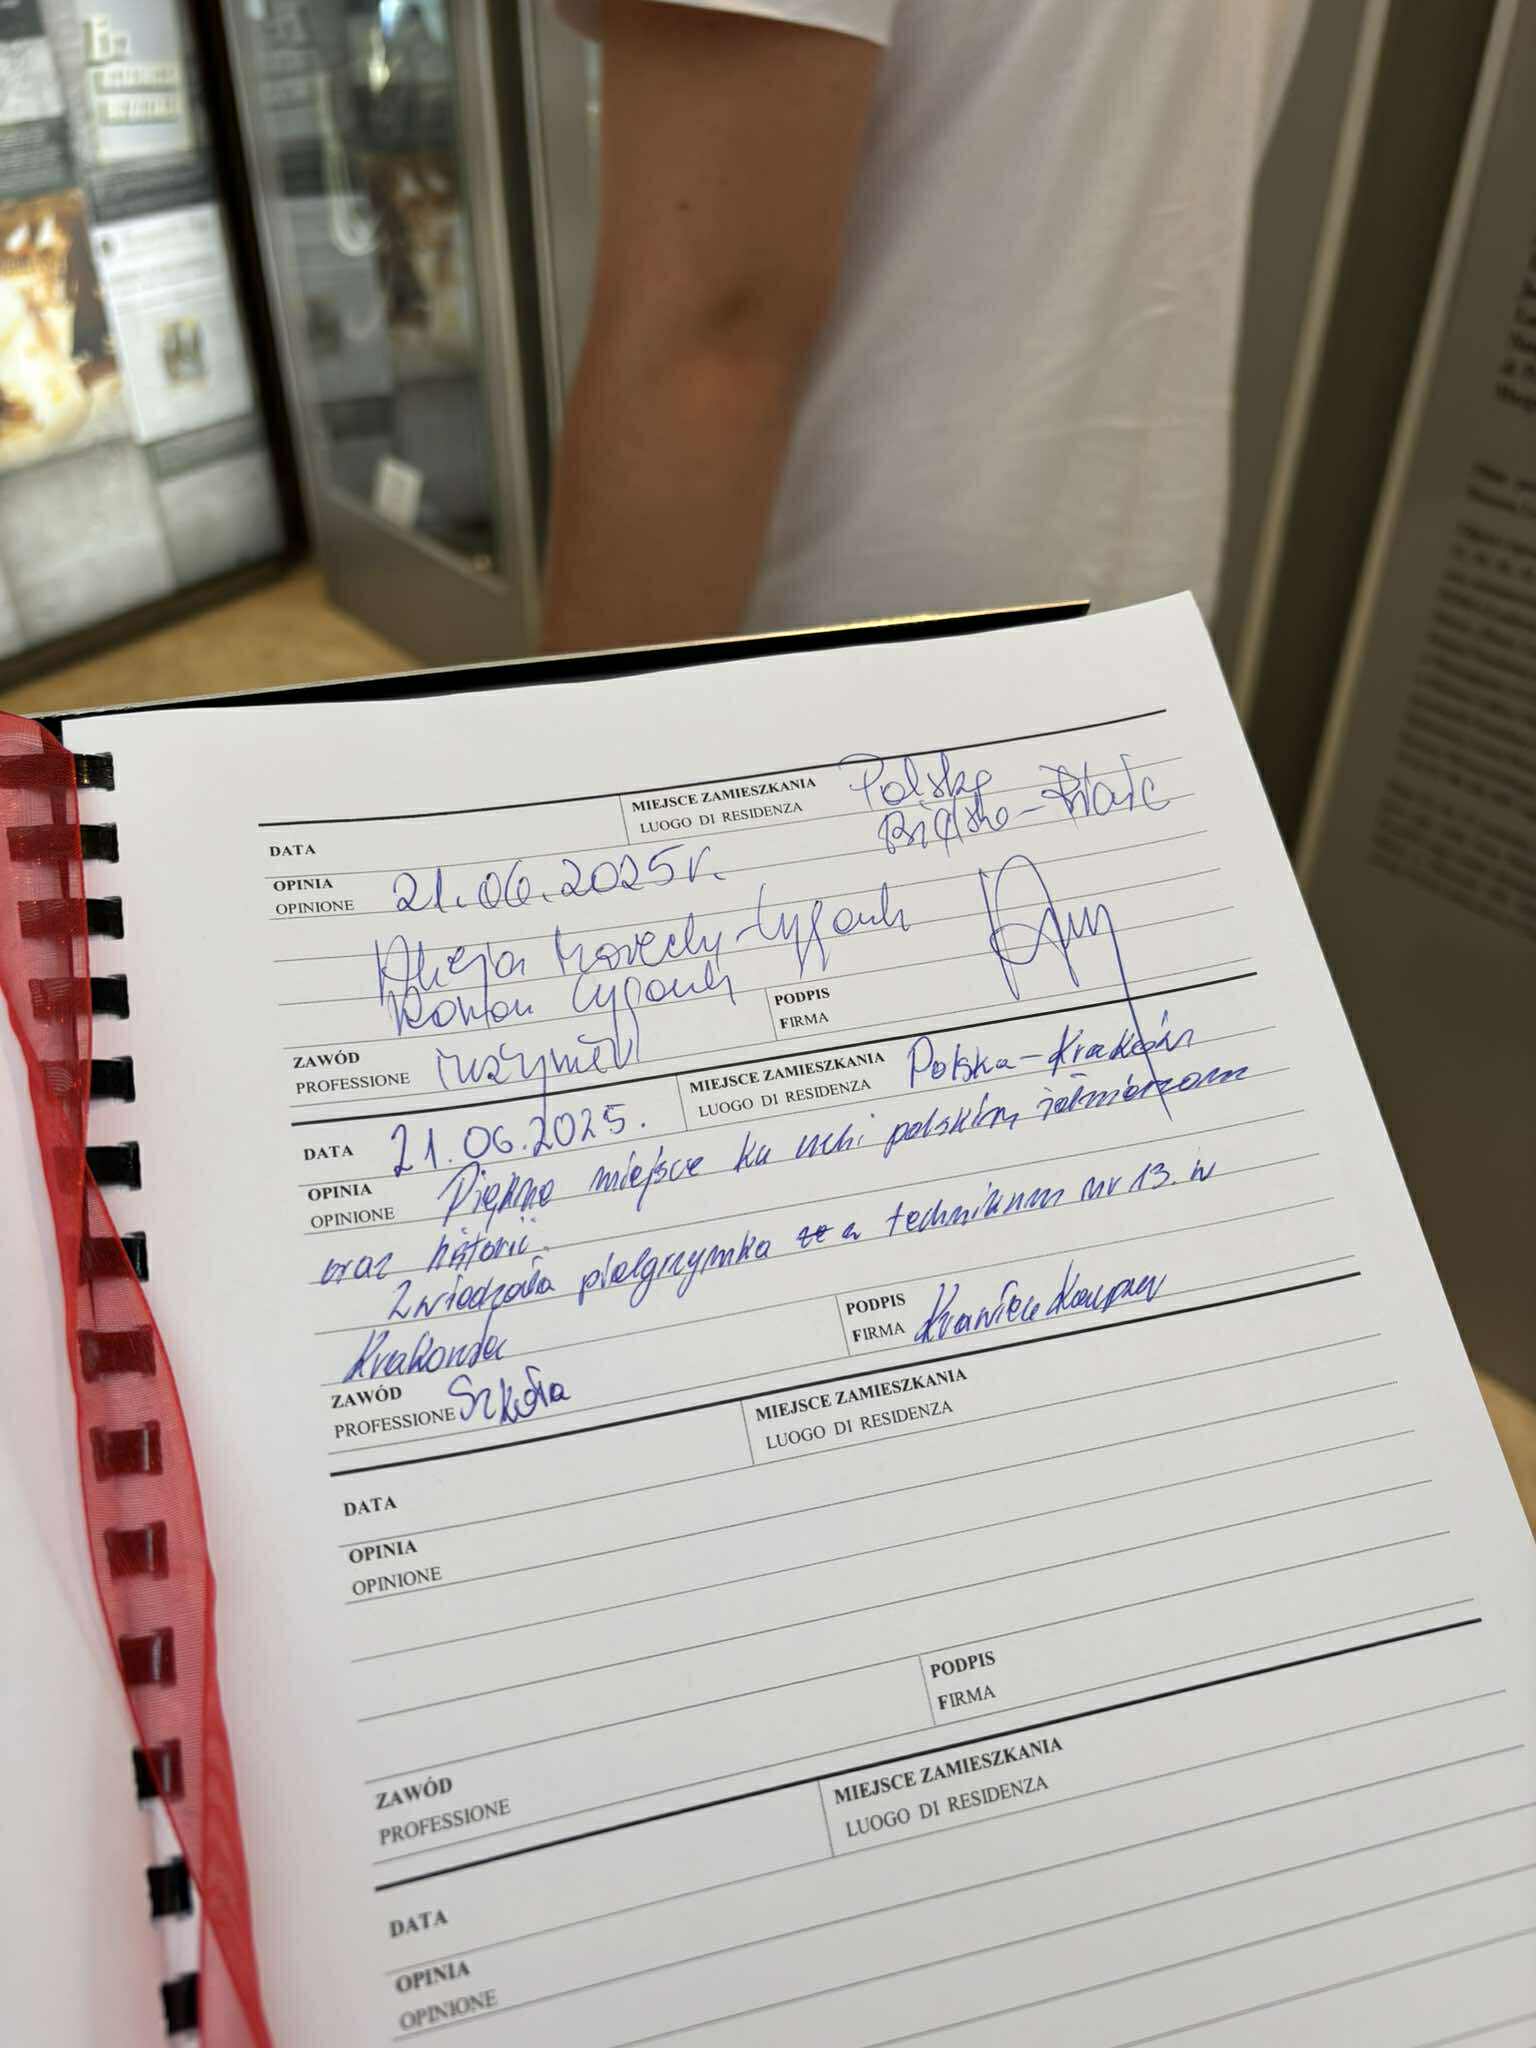 MIEJSCE ZAMIESZKANIA
LUOGO DI RESIDENZA
Polska
Bielsko-Biała
DATA
OPINIA
OPINIONE
21.06.2025r.
Alicja
Roman Cyganik
PODPIS
FIRMA
ZAWÓD
PROFESSIONE
inżynier
MIEJSCE ZAMIESZKANIA
LUOGO DI RESIDENZA
Polska-Kraków
DATA 21.06.2025.
OPINIA
OPINIONE
Piękne miejsce ku czci polskim żołnierzom
oraz historii.
Zwiedzała pielgrzymka z technikum nr 13. w
Krakowie
PODPIS
FIRMA
Krawiec Kacper
ZAWÓD
PROFESSIONE
Szkoła
MIEJSCE ZAMIESZKANIA
LUOGO DI RESIDENZA
DATA
OPINIA
OPINIONE
PODPIS
FIRMA
ZAWÓD
PROFESSIONE
MIEJSCE ZAMIESZKANIA
LUOGO DI RESIDENZA
DATA
OPINIA
OPINIONE